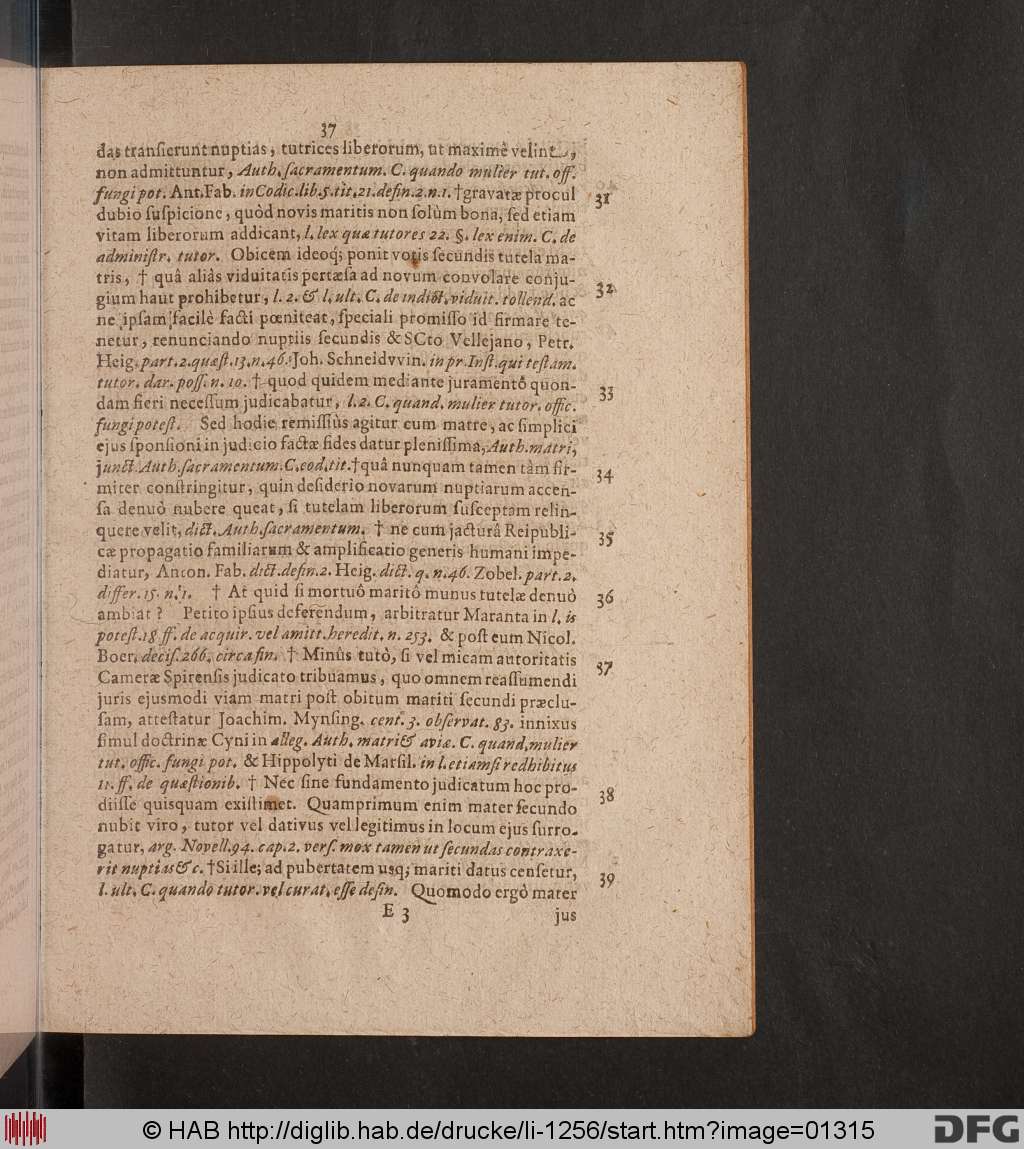 37
das transierunt nuptias, tutrices liberorum, ut maximè velint,
non admittuntur, Auth. sacramentum. C. quando mulier tut. off.
fungi pot. Ant. Fab. in Codic. lib. 5. tit. 21. defin. 2. n. 1. † gravatæ procul 31
dubio suspicione, quòd novis maritis non solùm bona, sed etiam
vitam liberorum addicant, l. lex quæ tutores 22. §. lex enim. C. de
administr. tutor. Obicem ideoq; ponit votis secundis tutela ma-
tris, † quâ aliâs viduitatis pertæsa ad novum convolare conju- 32
gium haut prohibetur, l. 2. & l. ult. C. de indict. viduit. tollend. ac
ne ipsam facilè facti pœniteat, speciali promisso id firmare te-
netur, renunciando nuptiis secundis & SCto Vellejano, Petr.
Heig. part. 2. quæst. 13. n. 46. Joh. Schneidvvin. in pr. Inst. qui testam.
tutor. dar. poss. n. 10. † quod quidem mediante juramentô quon- 33
dam fieri necessum judicabatur, l. 2. C. quand. mulier tutor. offic.
fungi potest. Sed hodie remissiùs agitur cum matre, ac simplici
ejus sponsioni in judicio factæ fides datur plenissima, Auth. matri,
junct. Auth. sacramentum. C. eod. tit. † quâ nunquam tamen tàm fir- 34
miter constringitur, quin desiderio novarum nuptiarum accen-
sa denuò nubere queat, si tutelam liberorum susceptam relin-
quere velit, dict. Auth. sacramentum. † ne cum jacturâ Reipubli- 35
cæ propagatio familiarum & amplificatio generis humani impe-
diatur, Anton. Fab. dict. defin. 2. Heig. dict. q. n. 46. Zobel. part. 2.
differ. 15. n. 1. † At quid si mortuô maritô munus tutelæ denuò 36
ambiat? Petito ipsius deferendum, arbitratur Maranta in l. is
potest. 18. ff. de acquir. vel amitt. heredit. n. 253. & post eum Nicol.
Boer. decis. 266. circa fin. † Minûs tutò, si vel micam autoritatis 37
Cameræ Spirensis judicato tribuamus, quo omnem reassumendi
juris ejusmodi viam matri post obitum mariti secundi præclu-
sam, attestatur Joachim. Mynsing. cent. 3. observat. 83. innixus
simul doctrinæ Cyni in alleg. Auth. matri & aviæ. C. quand. mulier
tut. offic. fungi pot. & Hippolyti de Marsil. in l. etiamsi redhibitus
11. ff. de quæstionib. † Nec sine fundamento judicatum hoc pro- 38
diisse quisquam existimet. Quamprimum enim mater secundo
nubit viro, tutor vel dativus vel legitimus in locum ejus surro-
gatur, arg. Novell. 94. cap. 2. vers. mox tamen ut secundas contraxe-
rit nuptias & c. † Si ille; ad pubertatem usq; mariti datus censetur, 39
l. ult. C. quando tutor. vel curat. esse desin. Quomodo ergò mater
E 3 jus
© HAB http://diglib.hab.de/drucke/li-1256/start.htm?image=01315
DFG